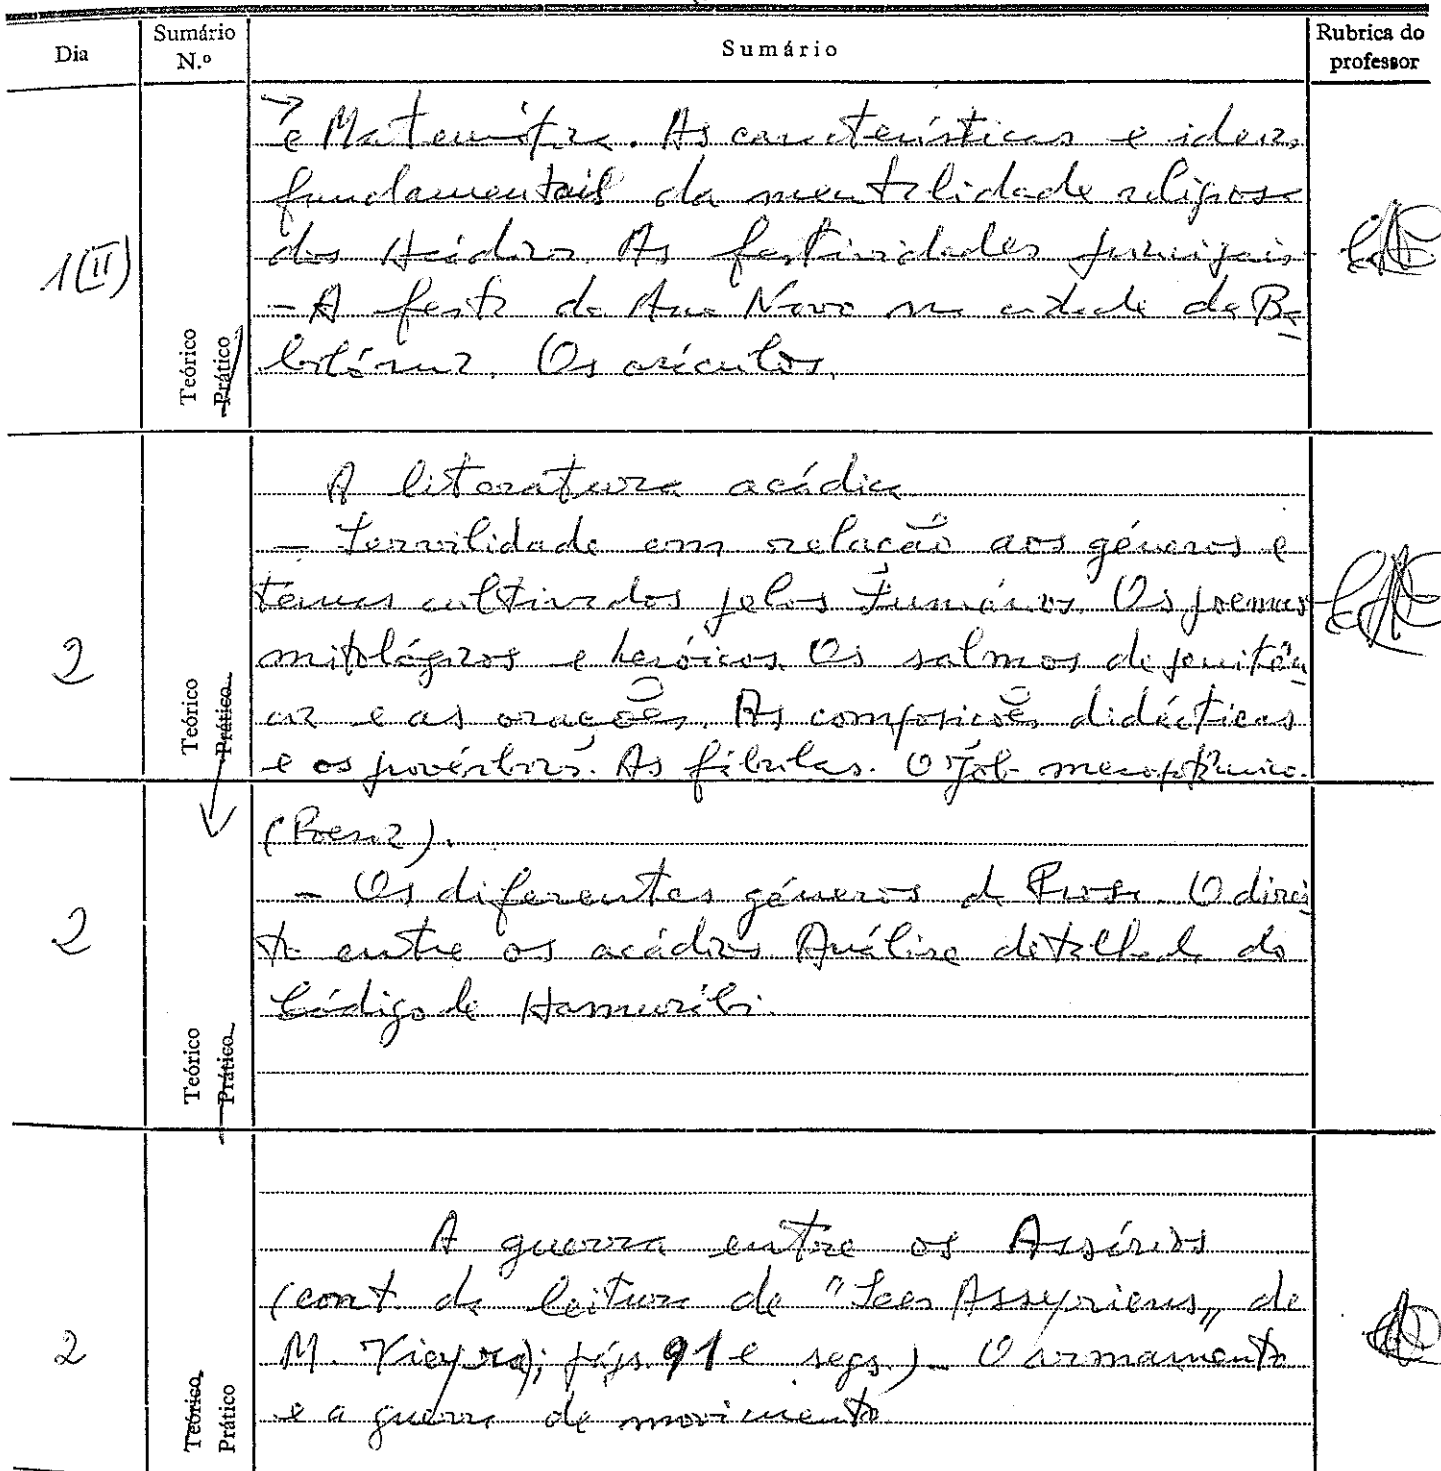 Dia
Sumário
N.º
Sumário
Rubrica do
professor
1(II)
Teórico
Prático
e Matemática. As características e ideias
fundamentais da mentalidade religiosa
dos Acádios. As festividades principais
- A festa do Ano Novo na cidade de Ba
bilónia. Os oráculos.
2
Teórico
Prático
A literatura acádica
- Servilidade em relação aos géneros e
temas cultivados pelos Sumérios. Os poemas
mitológicos e heróicos. Os salmos de penitên
cia e as orações. As composições didácticas
e os provérbios. As fábulas. O Job mesopotâmico.
2
Teórico
Prático
(Poesia).
- Os diferentes géneros de Prosa. O direi
to entre os acádios. Análise detalhada do
Código de Hamurábi.
2
Teórico
Prático
A guerra entre os Assírios
(cont. da leitura de "Les Assyriens" de
M. Vieyra; págs. 91 e segs.) - O armamento
e a guerra de movimento.